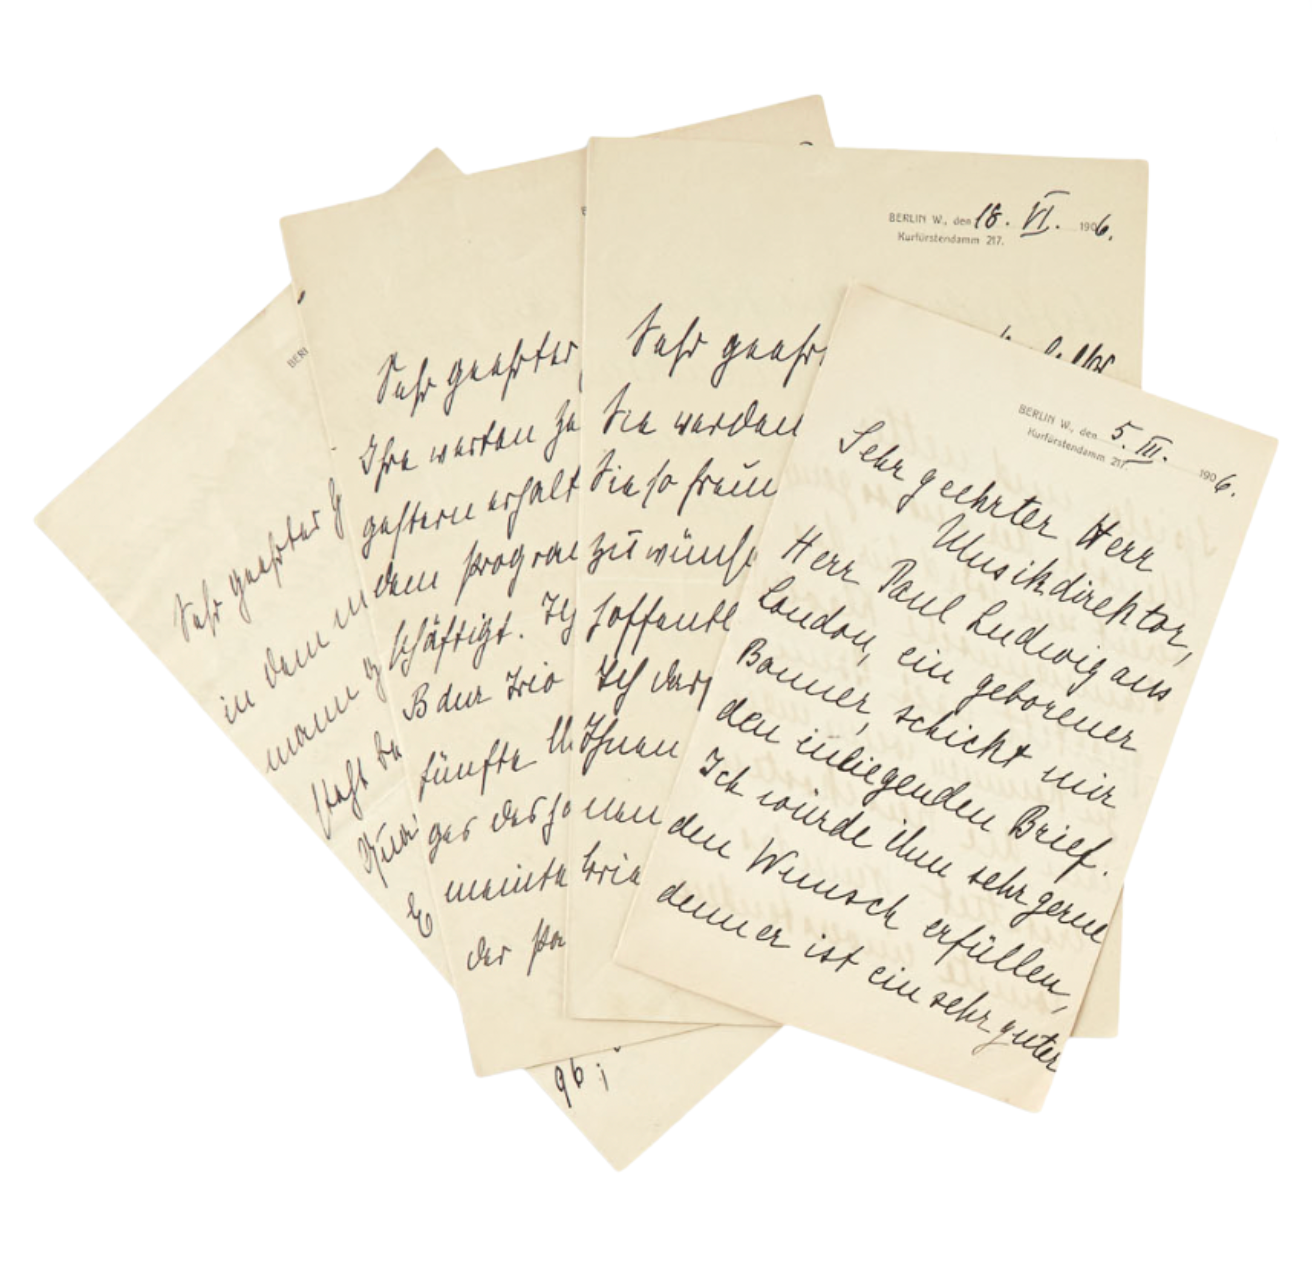 BERLIN W., den 5. III. 1906.
Kurfürstendamm 217.
Sehr geehrter Herr
Musikdirektor,
Herr Paul Ludwig aus
London, ein geborener
Bonner, schickt mir
den inliegenden Brief.
Ich würde ihm sehr gerne
den Wunsch erfüllen,
denn er ist ein sehr guter
BERLIN W., den 18. VI. 1906.
Kurfürstendamm 217.
Sehr geehr
Sie werden
Sie so freun
zu wünsch
hoffentl
Ich darf
Ihnen
nen
Sehr geehrter
Ihre werten
gestern erhalt
dem
schäftigt. Ich
B dur Trio
fünfte
ger
meinte
der
BERL
Sehr geehrter
in dem
mann
steht
96